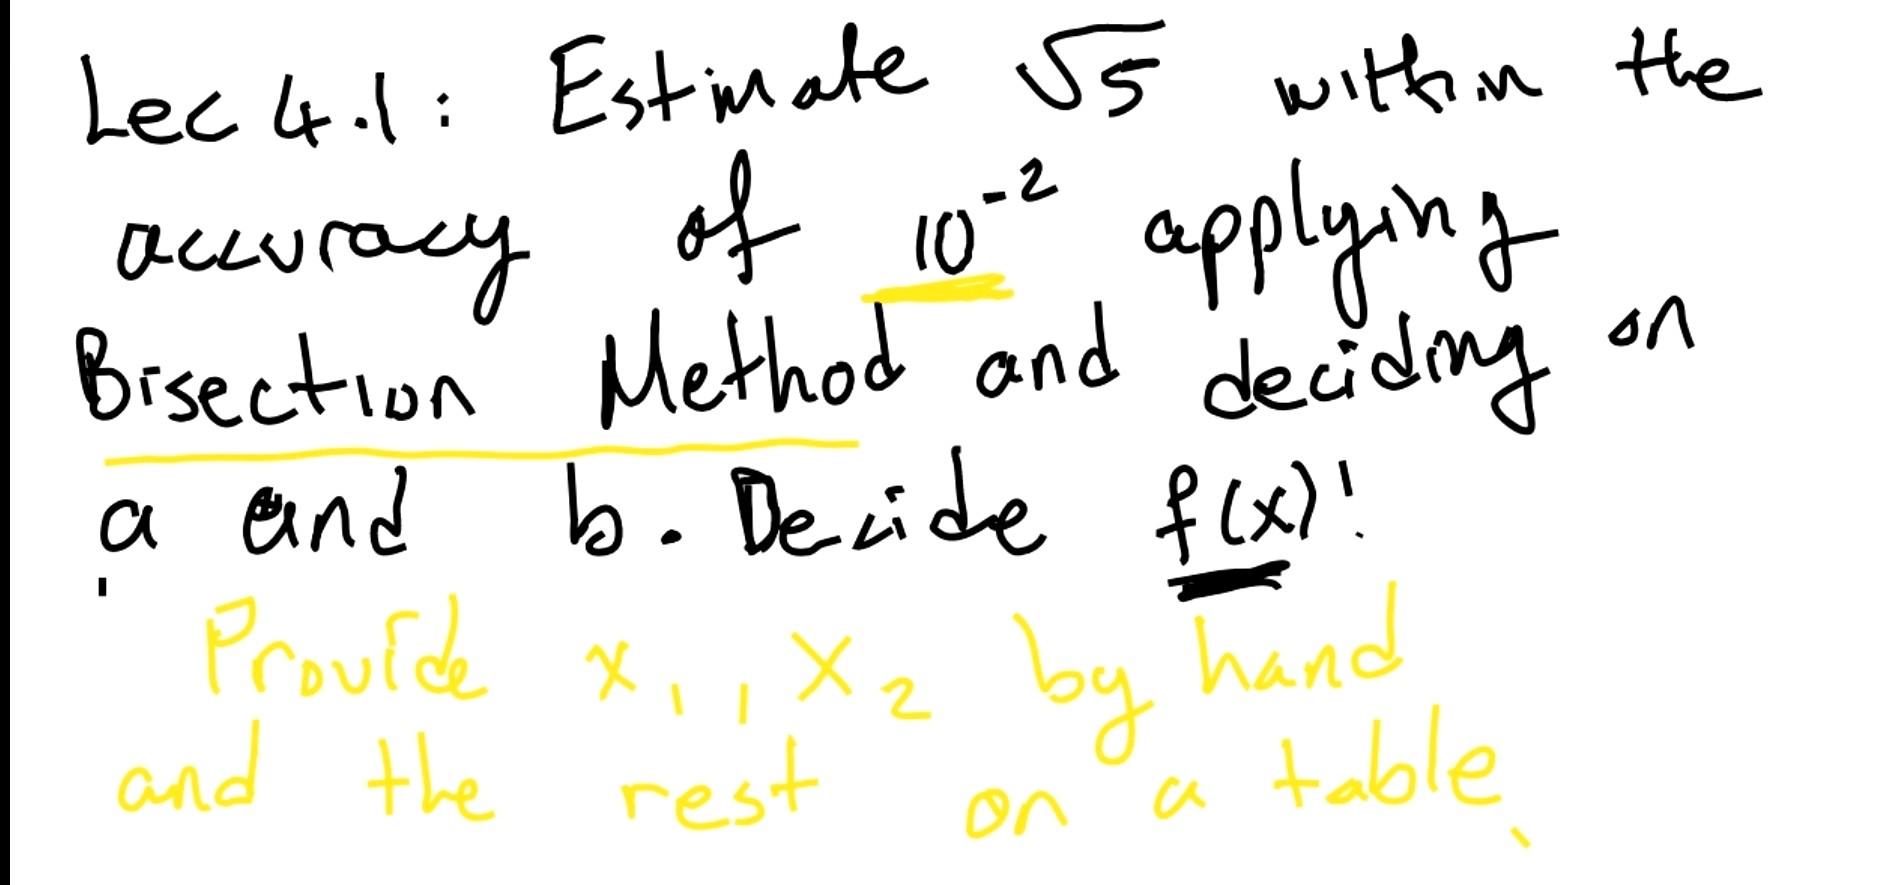 Lec 4.1: Estimate √5 within the
accuracy of 10⁻² applying
Bisection Method and deciding on
a and b. Decide f(x)!
Provide x₁, x₂ by hand
and the rest on a table.